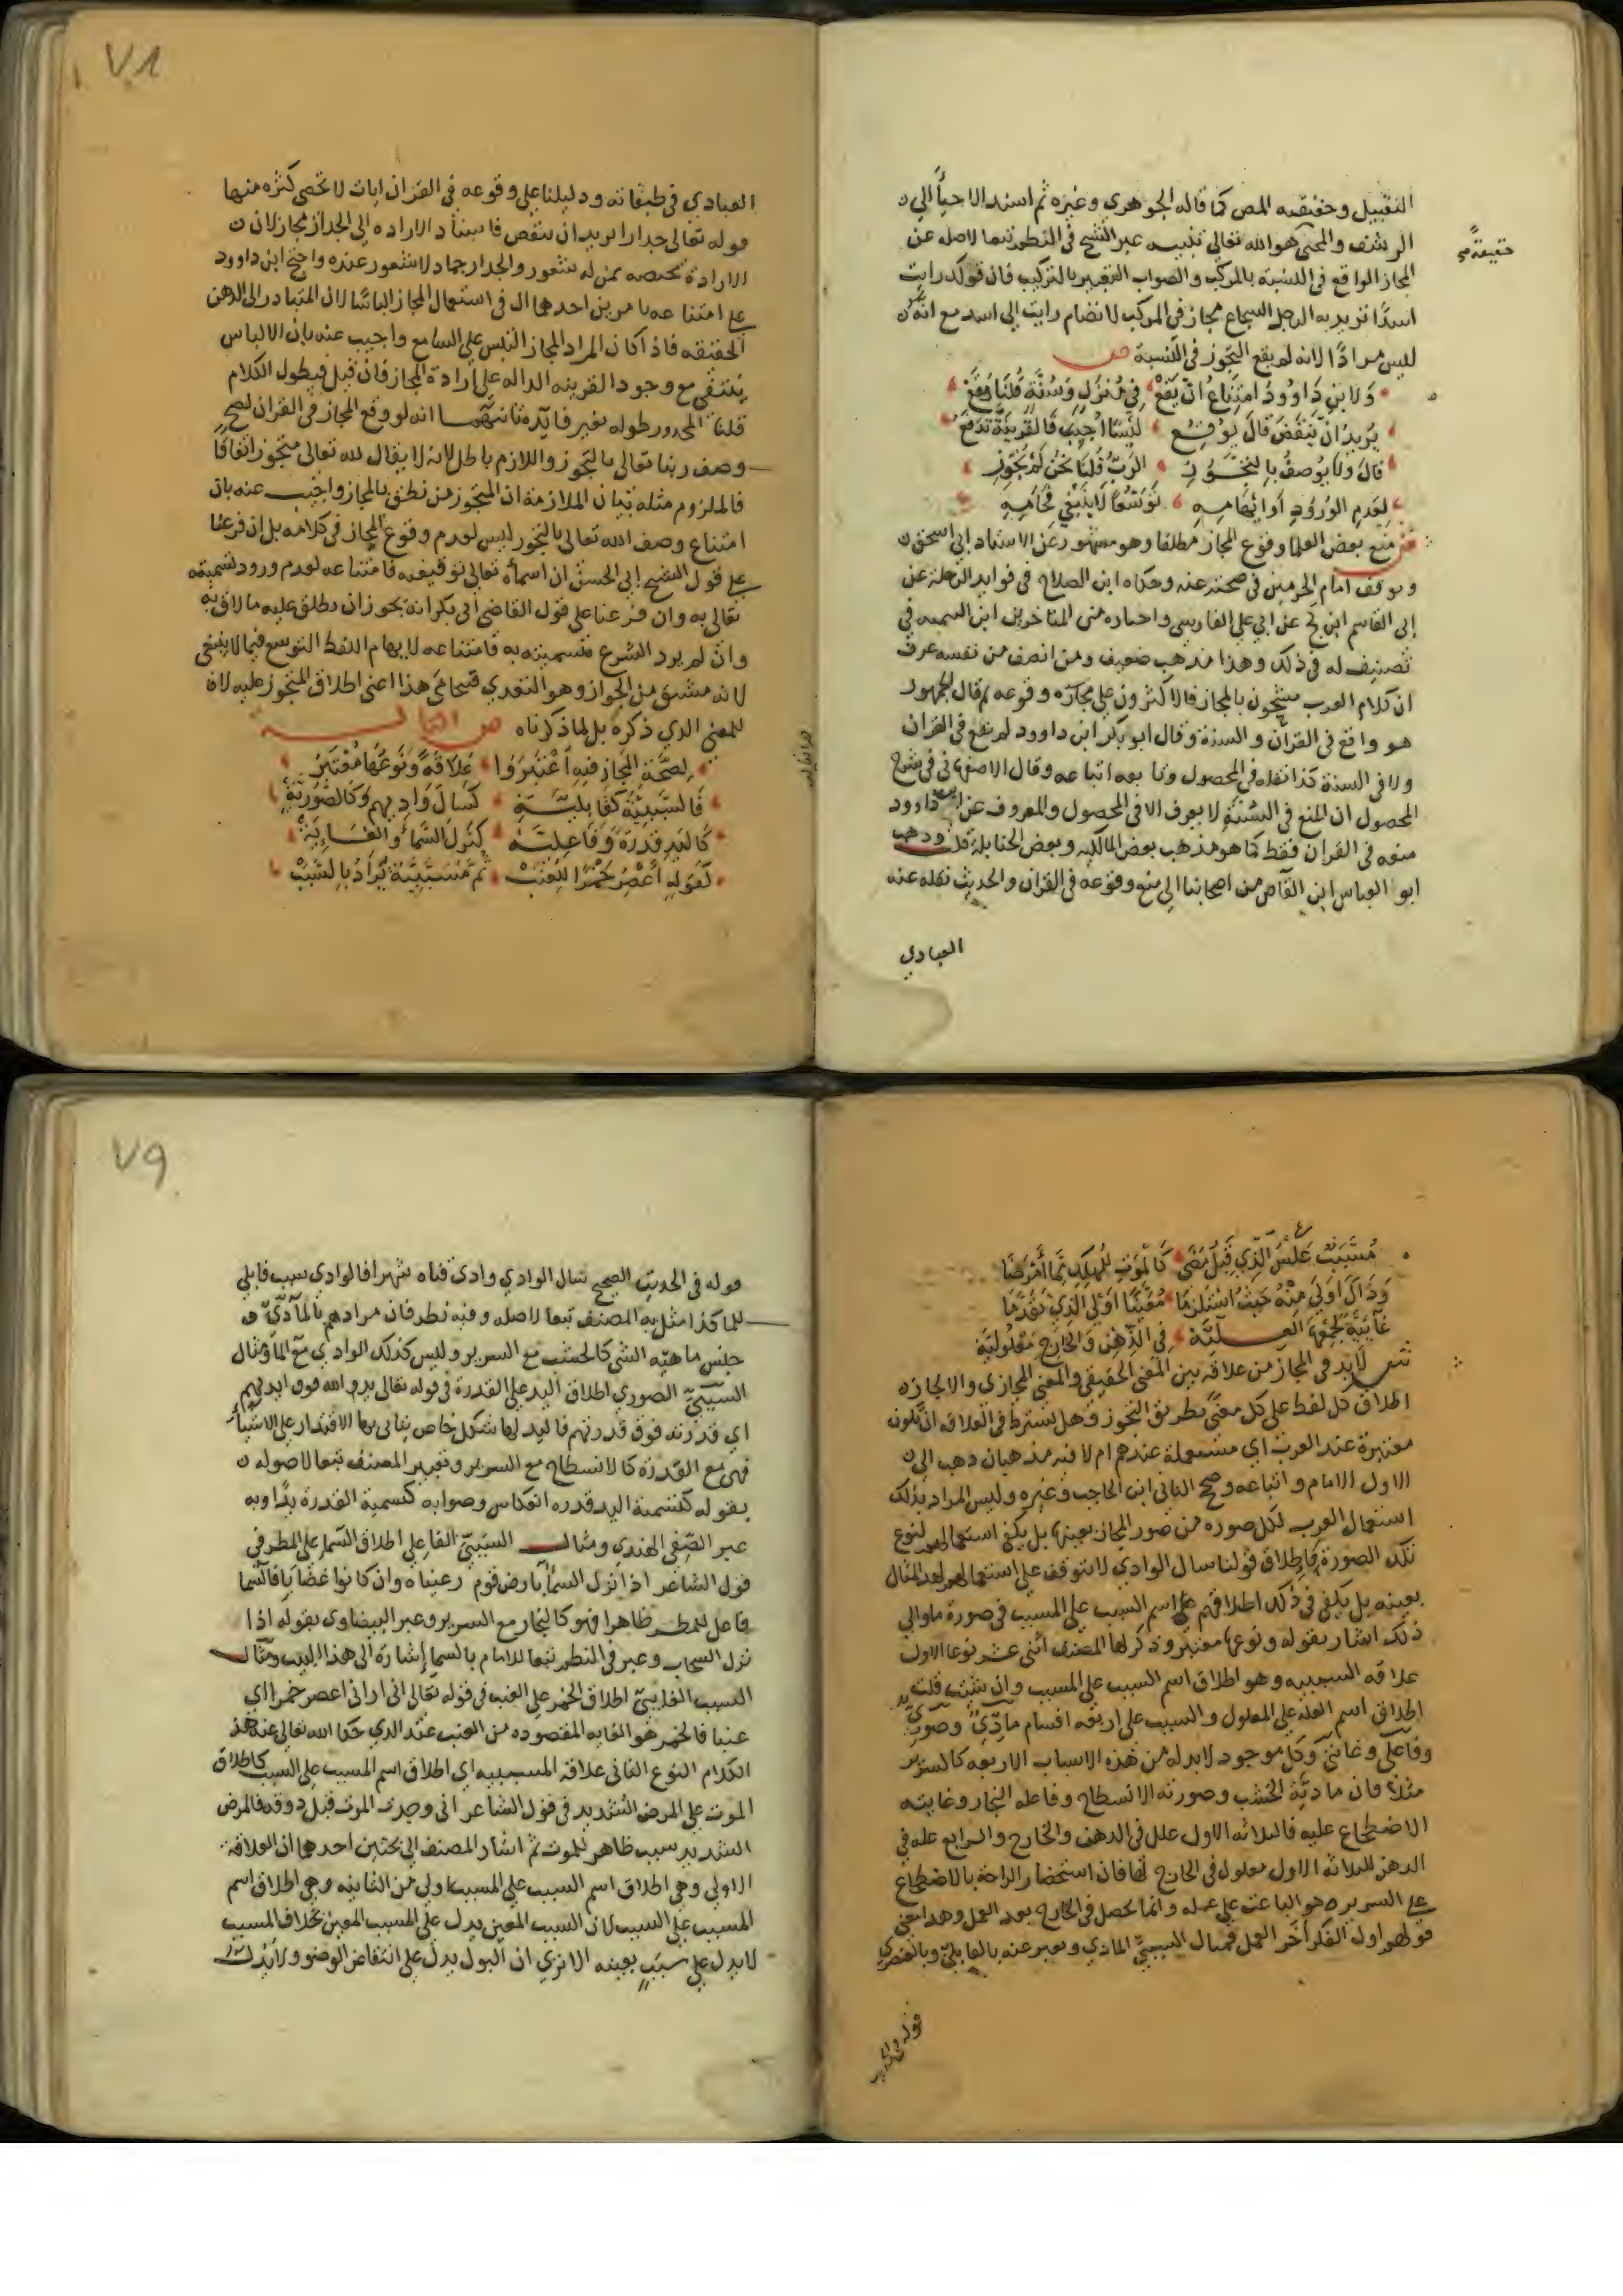 التقبيل وحقيقته المص كما قاله الجوهري وغيره ثم اسند الاحيا الى
الرشف والمحيي هو الله تعالى تنبيه عبر الشيخ في النظم تبعا لاصله عن
حقيقة
المجاز الواقع في النسبة بالمركب والصواب التعبير بالتركيب فان قولك رايت
اسدا تريد به الرجل الشجاع مجاز في المركب لانضمام رايت الى اسد مع انه
ليس مرادا لانه لم يقع التجوز في النسبة ص
وَلابن دَاوودَ امتِنَاعُ ان يَقَعْ في مُنْزَلٍ وَسُنَّةٍ قُلنَا وَقَعْ
يُريدُ انْ يَنقَضَّ قالَ يُوقِعُ لَبْسًا اُجِيبَ فَالقَرِينَةُ تَدفَعُ
قالَ ولا يُوصفُ بالتجَوُّزِ الرَبُّ قُلنَا نحنُ لَمْ نُجَوِّزِ
لِعَدمِ الوُرُودِ أو ايْهَامِهِ تَوَسُّعًا لَا يَنْبَغِي
ش منع بعض العلما وقوع المجاز مطلقا وهو مشهور عن الاستاد ابي اسحق
وتوقف امام الحرمين في صحته عنه وحكاه ابن الصلاح في فوايد الرحلة عن
ابي القاسم ابن كج عن ابي علي الفارسي واختاره من المتاخرين ابن تيميه في
تصنيف له في ذلك وهذا مذهب ضعيف ومن انصف من نفسه عرف
ان كلام العرب مشحون بالمجاز فالاكثرون على جوازه ووقوعه ثم قال الجمهور
هو واقع في القران والسنة وقال ابو بكر ابن داوود لم يقع في القران
ولا في السنة كذا نقله في المحصول وتابعه اتباعه وقال الاصفهاني في شرح
المحصول ان المنع في السنة لا يعرف الا في المحصول والمعروف عن ابن داوود
منعه في القران فقط كما هو مذهب بعض المالكيه وبعض الحنابلة قلت وذهب
ابو العباس ابن القاص من اصحابنا الى منع وقوعه في القران والحديث نقله عنه
العبادي
٧٨
العبادي في طبقاته ودليلنا على وقوعه في القران ايات لا تحصى كثره منها
قوله تعالى جدارا يريد ان ينقض فاسناد الاراده الى الجدار مجاز لان
الارادة مختصه بمن له شعور والجدار جماد لا شعور عنده واحتج ابن داوود
على امتناعه بامرين احدهما ان في استعمال المجاز الباسا لان المتبادر الى الذهن
الحقيقه فاذا كان المراد المجاز التبس على السامع واجيب عنه بان الالباس
ينتفي مع وجود القرينه الداله على ارادة المجاز فان قيل فيطول الكلام
قلنا المحذور طوله بغير فايدة ثانيهما انه لو وقع المجاز في القران لصح
وصف ربنا تعالى بالتجوز واللازم باطل لانه لا يقال لله تعالى متجوز اتفاقا
فالملزوم مثله بيان الملازمة ان المتجوز من نطق بالمجاز واجيب عنه بان
امتناع وصف الله تعالى بالتجوز ليس لعدم وقوع المجاز في كلامه بل ان فرعنا
على قول الشيخ ابي الحسن ان اسماه تعالى توقيفيه فامتناعه لعدم ورود تسميته
تعالى به وان فرعنا على قول القاضي ابي بكر انه يجوز ان يطلق عليه ما لاق به
وان لم يرد الشرع بتسميته به فامتناعه لايهام اللفظ التوسع فيما لا ينبغي
لانه مشتق من الجواز وهو التعدي هذا اعني اطلاق المتجوز عليه لا
للمعنى الذي ذكره بل لما ذكرناه ص
لِصِحَّةِ المجَازِ فيهِ اعْتَبَرُوا عَلَاقَةً وَنَوعُهَا مُعْتَبَرُ
فَالسَّبَبِيَّةُ كَقَابِليَّةِ كَسَالَ وَادِيهِم وَكَالصُّورِيَّةِ
كَاليَدِ قدرَةً وَفَاعِليَّةِ كَنَزَلَ السَّمَاءُ وَالغَائِيَّةِ
كَقَولِهِ أعْصِرُ خَمْرًا لِلْعِنَبْ ثُمَّ مُسَبَّبِيَّةٌ يُرَادُ بِالسَّبَبْ
مُسَبَّبٌ عَكْسُ الَّذِي قَبلُ مَضَى كَالمَوتِ لِلمُهلِكِ مِمَّا أَمْرَضَا
وَذَاكَ اولَى مِنْهُ حَيثُ اسْتَلزَمَا مُعَيَّنًا اَوْلَى الَّذِي تَقَدَّمَا
غَايَةٌ لِجَمْعِهَا العِلِّيَّة في الذِّهْنِ وَالخَارِجِ مَعْلُولِيَّة
ش لا بد في المجاز من علاقة بين المعنى الحقيقي والمعنى المجازي والا لجاز
اطلاق كل لفظ على كل معنى بطريق التجوز وهل يشترط في العلاقه ان تكون
معتبرة عند العرب اي مستعملة عندهم ام لا فيه مذهبان ذهب الى
الاول الامام واتباعه وصحح الثاني ابن الحاجب وغيره وليس المراد بذلك
استعمال العرب لكل صوره من صور المجاز بعينها بل يكفي استعمالهم لنوع
تلك الصورة فاطلاق قولنا سال الوادي لا يتوقف على استعمالهم لهذا المثال
بعينه بل يكفي في ذلك اطلاقهم اسم السبب على المسبب في صورة ما والى
ذلك اشار بقوله ونوعها معتبر وذكر لها المصنف اثنى عشر نوعا الاول
علاقه السببيه وهو اطلاق اسم السبب على المسبب وان شئت قلت
اطلاق اسم العله على المعلول والسبب على اربعه اقسام مادي وصوري
وفاعلي وغائي وكل موجود لا بد له من هذه الاسباب الاربعه كالسرير
مثلا فان مادته الخشب وصورته الانسطاح وفاعله النجار وغايته
الاضطجاع عليه فالثلاثه الاول علل في الذهن والخارج والرابع عله في
الذهن للثلاثه الاول معلول في الخارج لها فان استحضار الراحة بالاضطجاع
على السرير هو الباعث على عمله وانما يحصل في الخارج بعد العمل وهذا معنى
قولهم اول الفكر آخر العمل فمثال السببي المادي ويعبر عنه بالقابلي وبالعنصري
قوله في الحديث
٧٩
قوله في الحديث الصحيح سال الوادي وادي قناه شهرا فالوادي سبب قابلي
للما كذا مثل به المصنف تبعا لاصله وفيه نظر فان مرادهم بالمادي
جنس ماهيه الشي كالخشب مع السرير وليس كذلك الوادي مع الما ومثال
السببي الصوري اطلاق اليد على القدرة في قوله تعالى يد الله فوق ايديهم
اي قدرته فوق قدرتهم فاليد لها شكل خاص يتاتى بها الاقتدار على الاشياء
فهي مع القدرة كالانسطاح مع السرير وتعبير المصنف تبعا لاصوله
بقوله كتسمية اليد قدره انعكاس وصوابه كتسمية القدرة يدا وبه
عبر الصفي الهندي ومثال السببي الفاعلي اطلاق السما على المطر في
قول الشاعر اذا نزل السماء بارض قوم رعيناه وان كانوا غضابا فالسما
فاعل للمطر ظاهرا فهو كالنجار مع السرير وعبر البيضاوي بقوله اذا
نزل السحاب وعبر في النظم تبعا للامام بالسما إشارة الى هذا البيت ومثال
السبب الغايي اطلاق الخمر على العنب في قوله تعالى اني اراني اعصر خمرا اي
عنبا فالخمر هو الغايه المقصوده من العنب عند الذي حكا الله تعالى عنه هذا
الكلام النوع الثاني علاقه المسببيه اي اطلاق اسم المسبب على السبب كاطلاق
الموت على المرض الشديد في قول الشاعر اني وجدت الموت قبل ذوقه فالمرض
الشديد سبب ظاهر للموت ثم اشار المصنف الى بحثين احدهما ان العلاقة
الاولى وهي اطلاق اسم السبب على المسبب اولى من الثانيه وهي اطلاق اسم
المسبب على السبب لان السبب المعين يدل على المسبب المعين بخلاف المسبب
لا يدل على سبب بعينه الا ترى ان البول يدل على انتقاض الوضو ولا يدل